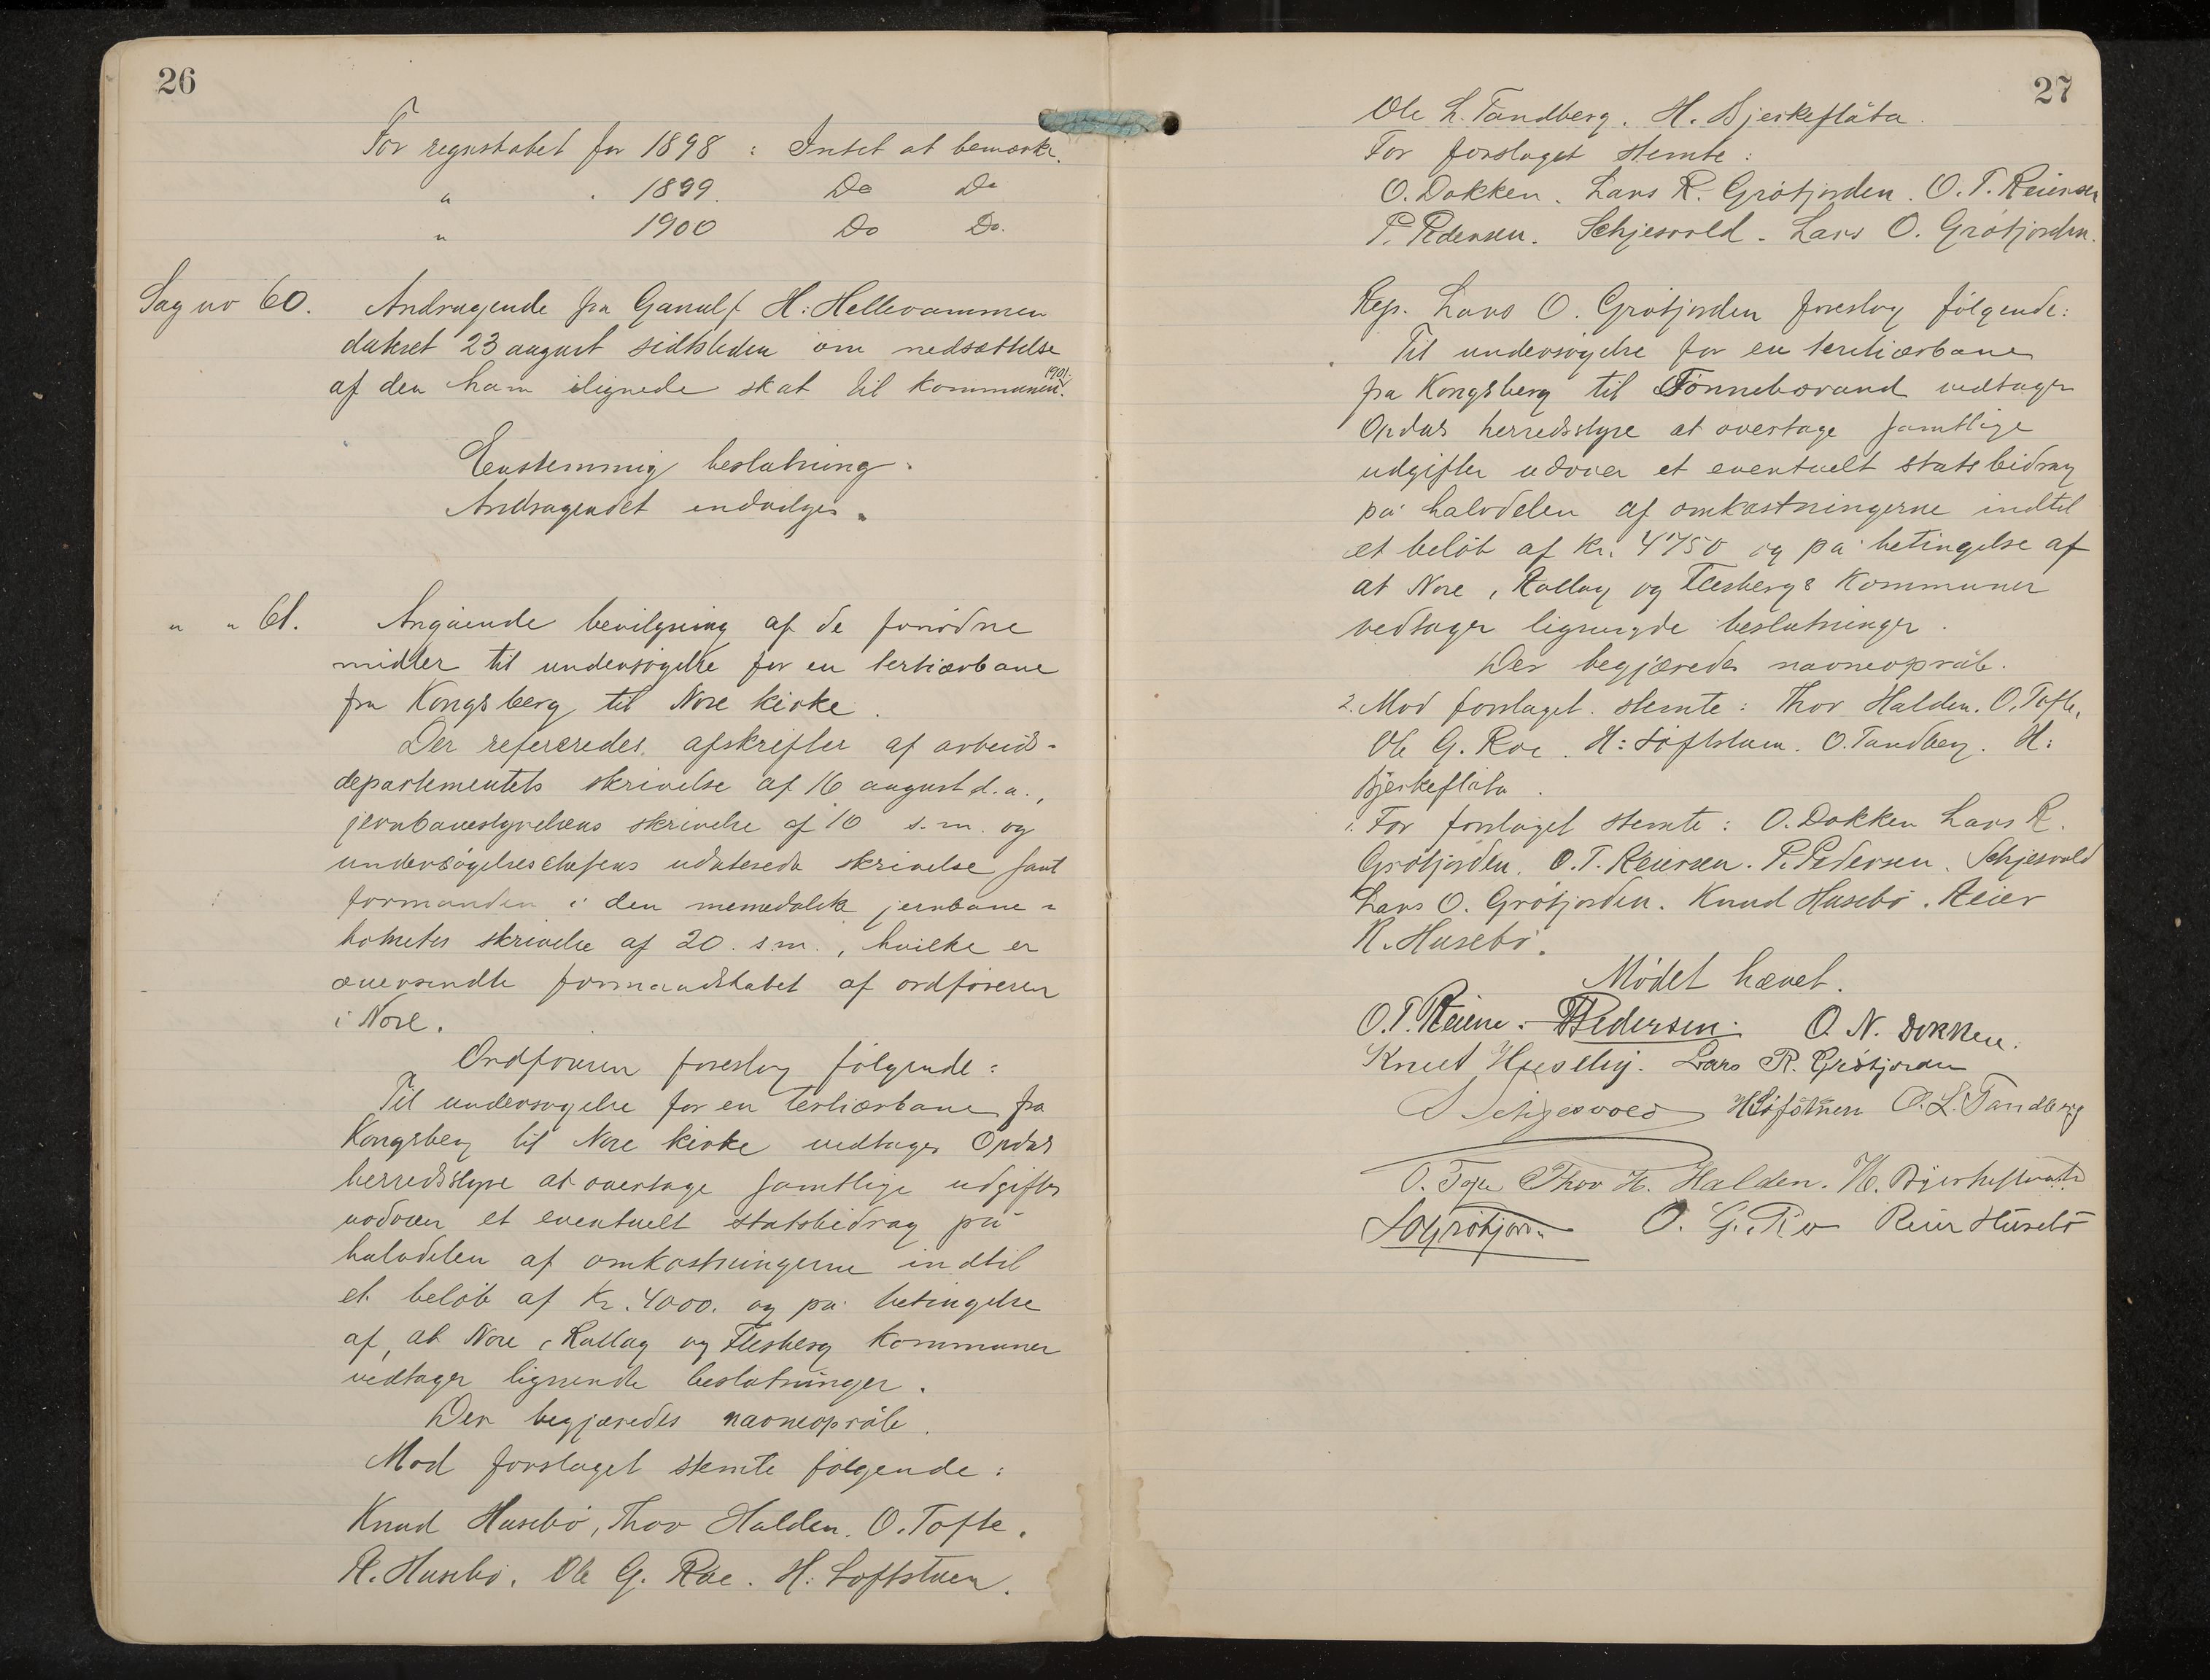 26
For regnskabet for 1898 : Intet at bemærke.
" . 1899. Do Do
" 1900 Do Do.
Sag nr 60. Andragende fra Ganulf H: Hellevammen
dateret 23 august sidstleden om nedsættelse
af den ham ilignede skat til kommunen 1901.
Enstemmig beslutning.
Andragendet indvilges.
" " 61. Angående bevilgning af de fornødne
midler til undersøgelse for en tertiærbane
fra Kongsberg til Nore kirke.
Der refereredes afskrifter af arbeids-
departementets skrivelse af 16 august d.a.,
jernbanestyrelsens skrivelse af 10 s.m. og
undersøgelseschefens udaterede skrivelse samt
formanden i den numedalske jernbane-
komites skrivelse af 20. s.m., hvilke er
oversendte formandskabet af ordføreren
i Nore.
Ordføreren foreslog følgende:
Til undersøgelse for en tertiærbane fra
Kongsberg til Nore kirke vedtager Opdal
herredsstyre at overtage samtlige udgifter
udover et eventuelt statsbidrag på
halvdelen af omkostningerne indtil
et beløb af Kr. 4000. og på betingelse
af, at Nore, Rollag og Flesberg kommuner
vedtager lignende beslutninger.
Der begjæredes navneopråb.
Mod forslaget stemte følgende:
Knud Husebø, Thov Halden. O. Tofte.
R. Husebø. Ole G. Roe. H: Loftstuen.
27
Ole L. Tandberg. H. Bjerkeflåta.
For forslaget stemte:
O. Dokken. Lars R. Grøtjorden. O. T. Reiersen
P. Pedersen. Schjesvold. Lars O. Grøtjorden.
Rep. Lars O. Grøtjorden foreslog følgende:
Til undersøgelse for en tertiærbane
fra Kongsberg til Tønnebovand vedtager
Opdals herredsstyre at overtage samtlige
udgifter udover et eventuelt statsbidrag
på halvdelen af omkostningerne indtil
et beløb af Kr. 4750 og på betingelse af
at Nore, Rollag og Flesbergs kommuner
vedtager lignende beslutninger.
Der begjæredes navneopråb.
2. Mod forslaget stemte: Thov Halden. O. Tofte.
Ole G. Roe. H: Loftstuen. O. Tandberg. H:
Bjerkeflåta.
1. For forslaget stemte: O. Dokken Lars R.
Grøtjorden. O. T. Reiersen. P. Pedersen. Schjesvold
Lars O. Grøtjorden. Knud Husebø. Reier
R. Husebø.
Mødet hævet.
O. T. Reiersen. P Pedersen. O. N. Dokken.
Knut Lars R. Grøtjorden
S Schjesvold H Loftstuen O. L. Tandberg
O. Tofte Thov H. Halden. H. Bjerkeflaate
L O Grøtjorden O. G. Roe Reier Husebø